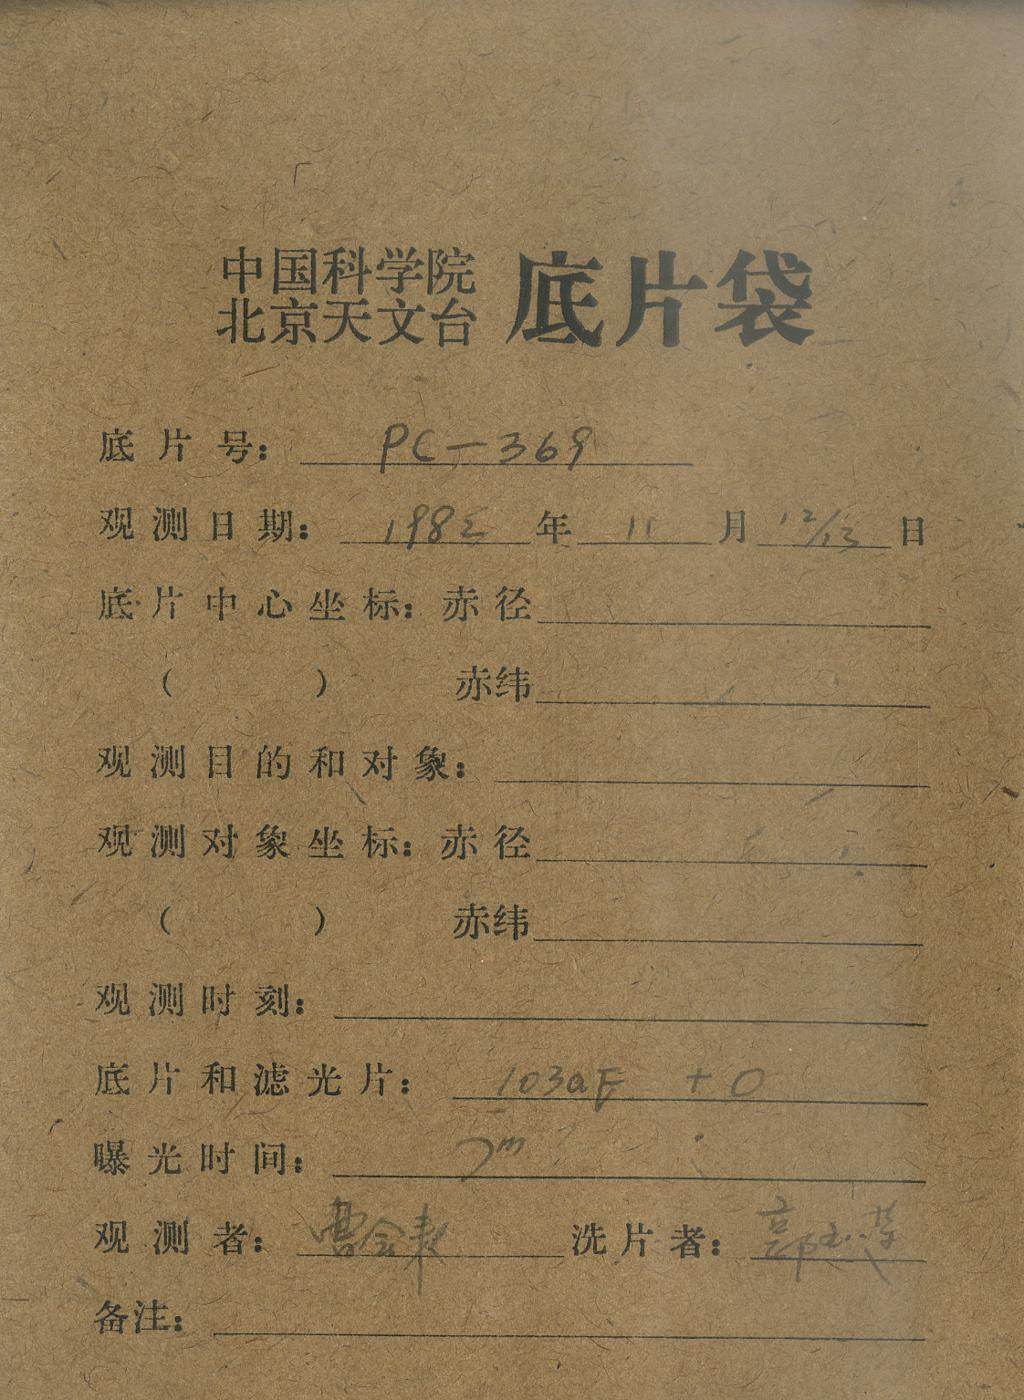 中国科学院
北京天文台 底片袋
底片号: PC-369
观测日期: 198 年 11 月 12/13 日
底片中心坐标: 赤径
( ) 赤纬
观测目的和对象:
观测对象坐标: 赤径
( ) 赤纬
观测时刻:
底片和滤光片: 103aF + O
曝光时间: 7m
观测者: 曹 洗片者: 郭玉
备注: